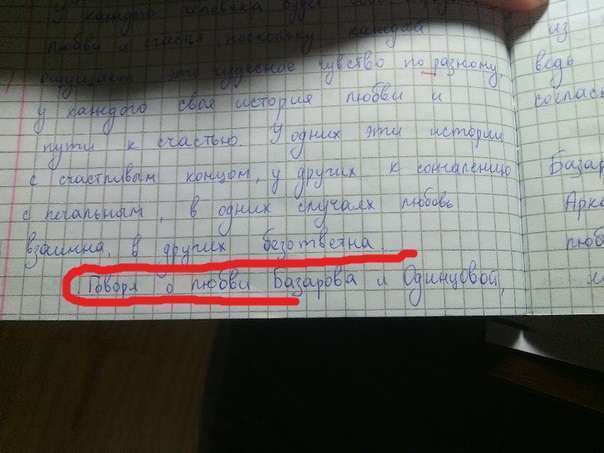 У каждого человека будет
любви и счастья, поскольку каждый
ощущает это чудесное чувство по разному,
у каждого своя история любви и
пути к счастью. У одних эти истории
с счастливым концом, у других к сожалению
с печальным, в одних случаях любовь
взаимна, в других безответна.
Говоря о любви Базарова и Одинцовой,
из
ведь
соглас
База
Арка
люб